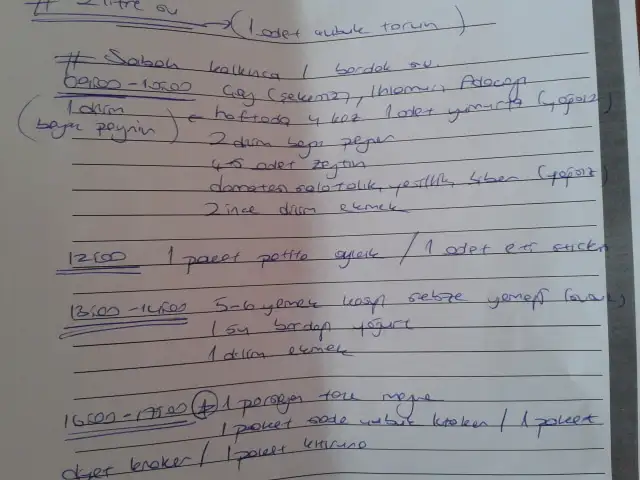 # 2 litre su
(1 adet çubuk tarçın)
# Sabah kalkınca 1 bardak su.
09:00-10:00 Çay (şekersiz), Ihlamur, Adaçayı
(1 dilim beyaz peynir) ← haftada 4 kez 1 adet yumurta (yağsız)
2 dilim beyaz peynir
4-5 adet zeytin
domates, salatalık, yeşillik, biber (yağsız)
2 ince dilim ekmek
12:00 1 paket petito / 1 adet eti
13:00-14:00 5-6 yemek kaşığı sebze yemeği
1 su bardağı yoğurt
1 dilim ekmek
16:00-17:00 1 porsiyon taze meyve
1 paket sade çubuk kraker / 1 paket
diyet kraker / 1 paket